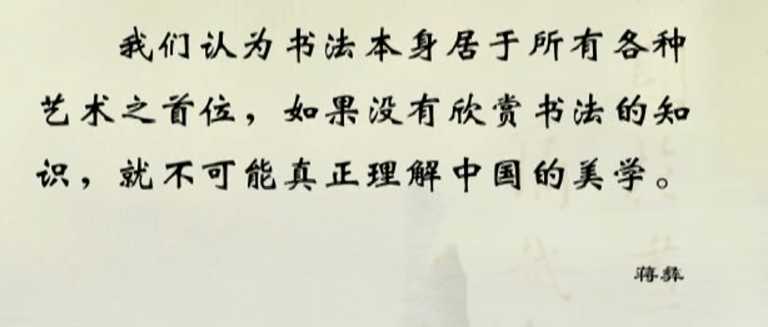 我们认为书法本身居于所有各种
艺术之首位，如果没有欣赏书法的知
识，就不可能真正理解中国的美学。
蒋彝